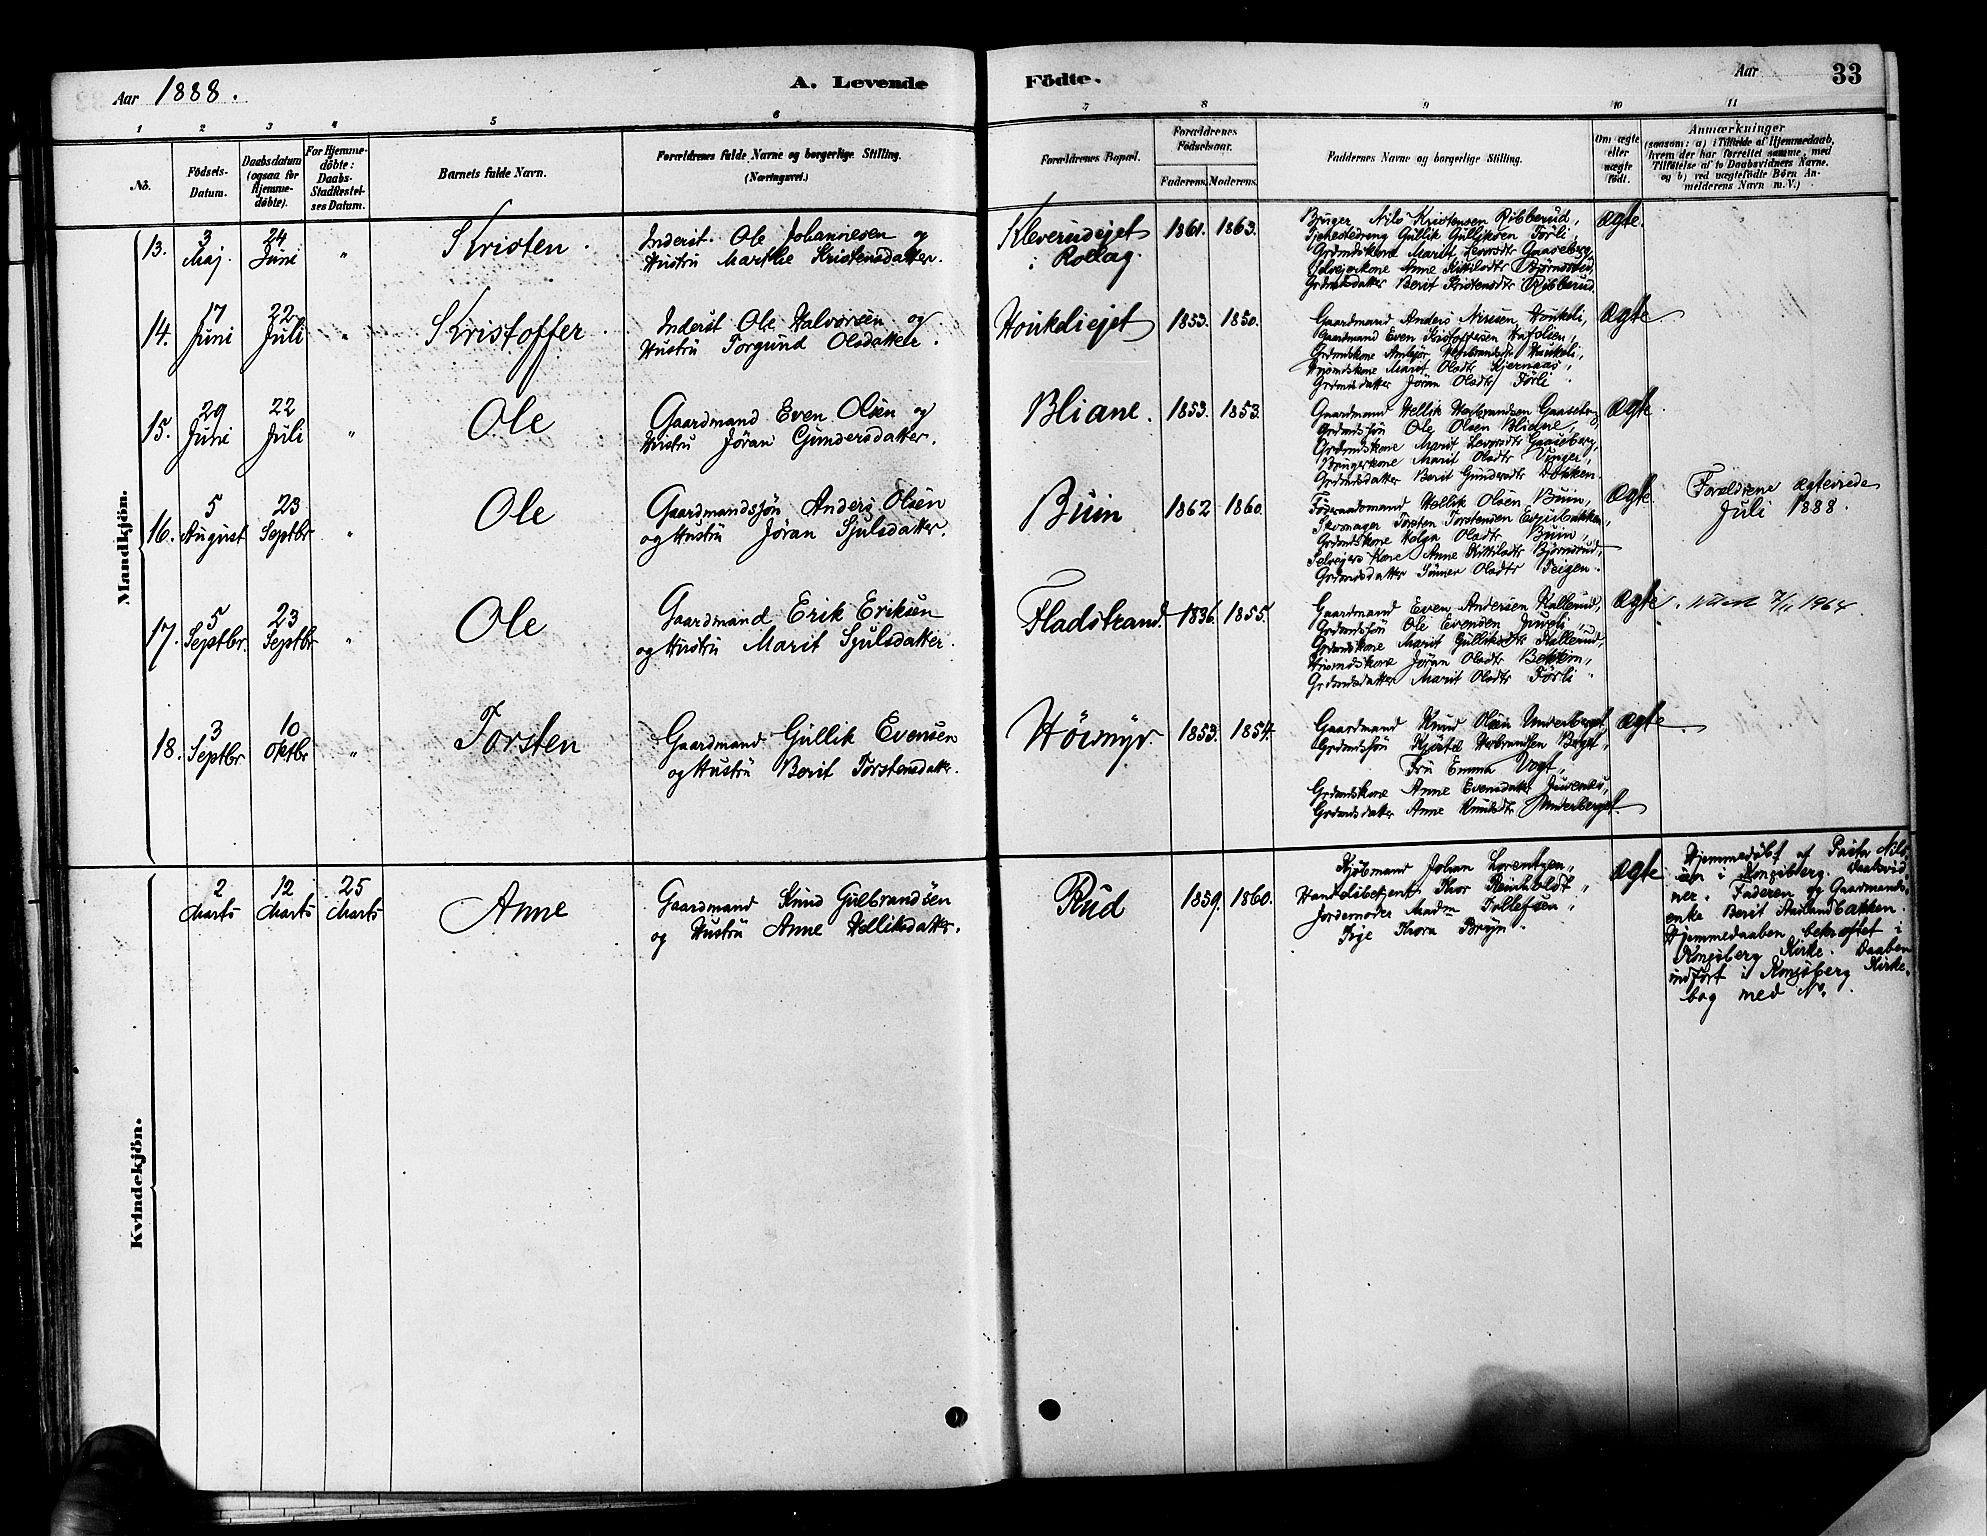 Aar 1888.
A. Levende
Födte.
Aar
33
1
2
3
4
5
6
7
8
9
10
11
No.
Födsels-
Datum.
Daabsdatum
(ogsaa for
Hjemme-
döbte).
For Hjemme-
döbte:
Daabs-
Stadfæstel-
ses Datum.
Barnets fulde Navn.
Forældrenes fulde Navne og borgerlige Stilling.
(Næringsvei.)
Forældrenes Bopæl.
Forældrenes
Födselsaar.
Faderens.
Moderens.
Faddernes Navne og borgerlige Stilling.
Om ægte
eller
uægte
født.
Anmærkninger
(saasom: a) i Tilfælde af Hjemmedaab,
hvem der har forrettet samme, med
Tilföielse af to Daabsvidners Navne,
og b) ved uægtefödte Börn An-
melderens Navn m. V.)
Mandkjön.
13.
3
Maj.
24
Juni
"
Kristen
Inderst Ole Johannesen og
Hustru Marthe Kristensdatter.
Kleverudejet
i Rollag.
1861.
1863.
Bruger Nils Kristensen Ribberud,
Tjenestedreng Gullik Gulliksen Førli,
Grdmdskone Marit Leversdtr Gaaseberg,
Selvejerkone Anne Kittilsdtr Bjørnsrud,
Grdmdsdatter Berit Kristensdtr Ribberud.
ægte.
14.
17
Juni
22
Juli
"
Kristoffer
Inderst Ole Halvorsen og
Hustru Torgund Olsdatter.
Houkeliejet
1853.
1850.
Gaardmand Anders Nilsen Houkeli,
Gaardmand Even Kristoffersen
Grdmdskone
Husmdskone Marit Olsdtr Kjernaas,
Grdmdsdatter Jøran Olsdtr Førli.
ægte
15.
29
Juni
22
Juli
"
Ole
Gaardmand Even Olsen og
Hustru Jøran Gundersdatter.
Bliane.
1853.
1853.
Gaardmand Hellik Herbrandsen Gaaseberg,
Grdmdssøn Ole Olsen Bliane,
Grdmdskone Marit Leversdtr Gaaseberg,
Brugerkone Marit Olsdtr
Grdmdsdatter Berit Gundersdtr Dokken.
ægte.
16.
5
August
23
Septbr
"
Ole
Gaardmandssøn Anders Olsen
og Hustru Jøran Sjulsdatter.
Buin
1862
1860.
Føderaadsmand Hellik Olsen Buin,
Skomager Torsten Torstensen
Grdmdskone Helga Olsdtr Buin,
Selvejers Kone Anne Kittilsdtr Bjørnsrud,
Grdmdsdatter Olsdtr Teigen.
ægte.
Forældrene ægteviede
Juli 1888.
17.
5
Septbr.
23
Septbr
"
Ole
Gaardmand Erik Eriksen
og Hustru Marit Sjulsdatter.
Fladstrand.
1836.
1855.
Gaardmand Even Andersen Hallerud,
Grdmdssøn Ole Evensen Juveli,
Grdmdskone Marit Gulliksdtr Hallerud,
Husmdskone Jøran Olsdtr
Grdmdsdatter Marit Olsdtr Førli.
ægte.
1964
18.
3
Septbr
10
Oktbr
"
Torsten
Gaardmand Gullik Evensen
og Hustru Berit Torstensdatter.
Høimyr.
1853.
1854.
Gaardmand Knud Olsen Underberget,
Grdmdssøn Kjøstel Herbrandsen
Fru Emma Vogt,
Grdmdskone Anne Evensdatter
Grdmdsdatter Anne Knudsdtr Underberget.
ægte.
Kvindekjön.
2
Marts
12
Marts
25
Marts
Anne
Gaardmand Knud Gulbrandsen
og Hustru Anne Helliksdatter.
Rud
1859.
1860.
Kjøbmand Johan Lorentzen,
Handelsbetjent Thor Reinholdt,
Jordemoder Madm Tollefsen,
Pige Thora Bryn.
ægte
Hjemmedøbt af Pastor Nils-
sen i Kongsberg. Daabsvid-
ner: Faderen og Gaardmands-
enke Berit
Hjemmedaaben bekræftet i
Kongsberg Kirke. Daaben
indført i Kongsberg Kirke-
bog med No.